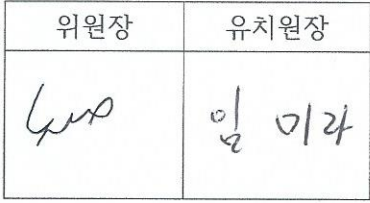 위원장 유치원장
임 미라